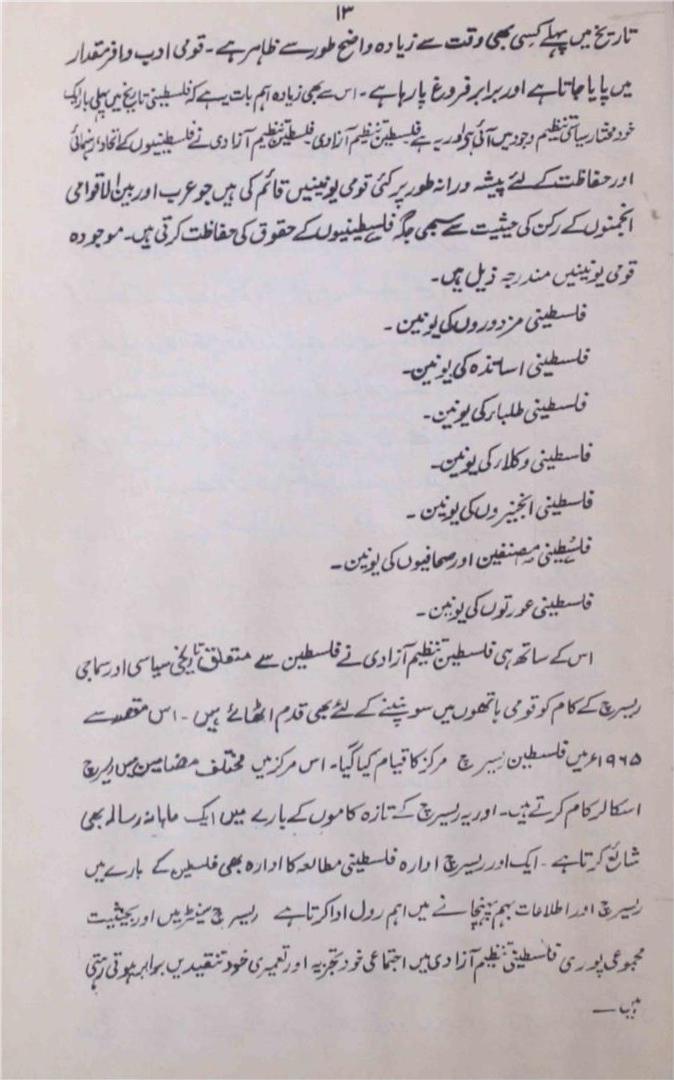 ۱۳
تاریخ میں پہلے کسی بھی وقت سے زیادہ واضح طور سے ظاہر ہے ۔ قومی ادب وافر مقدار
میں پایا جاتا ہے اور برابر فروغ پا رہا ہے ۔ اس سے بھی زیادہ اہم بات یہ ہے کہ فلسطینی تاریخ میں پہلی بار ایک
خود مختار سیاسی تنظیم وجود میں آئی ہی اور یہ ہے فلسطین تنظیم آزادی ۔ فلسطین تنظیم آزادی نے فلسطینیوں کے اتحاد، رہنمائی
اور حفاظت کے لئے پیشہ ورانہ طور پر کئی قومی یونینیں قائم کی ہیں جو عرب اور بین الاقوامی
انجمنوں کے رکن کی حیثیت سے سبھی جگہ فلسطینیوں کے حقوق کی حفاظت کرتی ہیں ۔ موجودہ
قومی یونینیں مندرجہ ذیل ہیں ۔
فلسطینی مزدوروں کی یونین ۔
فلسطینی اساتذہ کی یونین ۔
فلسطینی طلبار کی یونین ۔
فلسطینی وکلار کی یونین ۔
فلسطینی انجینروں کی یونین ۔
فلسطینی مصنفین اور صحافیوں کی یونین ۔
فلسطینی عورتوں کی یونین ۔
اس کے ساتھ ہی فلسطین تنظیم آزادی نے فلسطین سے متعلق تاریخی سیاسی اور سماجی
ریسرچ کے کام کو قومی ہاتھوں میں سونپنے کے لئے بھی قدم اٹھائے ہیں ۔ اس مقصد سے
۱۹۶۵ء میں فلسطین ریسرچ مرکز کا قیام کیا گیا ۔ اس مرکز میں مختلف مضامین میں ریسرچ
اسکالر کام کرتے ہیں ۔ اور یہ ریسرچ کے تازہ کاموں کے بارے میں ایک ماہانہ رسالہ بھی
شائع کرتا ہے ۔ ایک اور ریسرچ ادارہ فلسطینی مطالعہ کا ادارہ بھی فلسطین کے بارے میں
ریسرچ اور اطلاعات بہم پہنچانے میں اہم رول ادا کرتا ہے ریسرچ سینٹر میں اور بحیثیت
مجموعی پوری فلسطینی تنظیم آزادی میں اجتماعی خود تجزیہ اور تعمیری خود تنقیدیں برابر ہوتی رہتی
ہیں ۔